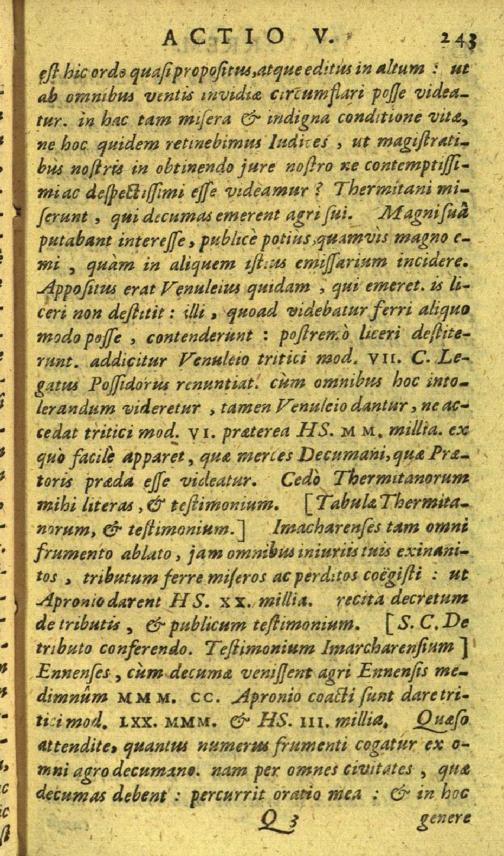 ACTIO V. 243
est hic ordo quasi propositus, atque editus in altum : ut
ab omnibus ventis invidiæ circumflari posse videa-
tur. in hac tam misera & indigna conditione vitæ,
ne hoc quidem retinebimus Iudices, ut magistrati-
bus nostris in obtinendo jure nostro ne contemptissi-
mi ac despectissimi esse videamur ? Thermitani mi-
serunt, qui decumas emerent agri sui. Magni suâ
putabant interesse, publicè potius, quamvis magno e-
mi, quàm in aliquem istius emissarium incidere.
Appositus erat Venuleius quidam, qui emeret. is li-
ceri non destitit : illi, quoad videbatur ferri aliquo
modo posse, contenderunt : postremò liceri destite-
runt. addicitur Venuleio tritici mod. VII. C. Le-
gatus Possidorus renuntiat. cùm omnibus hoc into-
lerandum videretur, tamen Venuleio dantur, ne ac-
cedat tritici mod. VI. præterea HS. M M. millia. ex
quò facilè apparet, quæ merces Decumani, quæ Præ-
toris præda esse videatur. Cedò Thermitanorum
mihi literas, & testimonium. [Tabulæ Thermita-
norum, & testimonium.] Imacharenses tam omni
frumento ablato, jam omnibus iniuriis tuis exinani-
tos, tributum ferre miseros ac perditos coëgisti : ut
Apronio darent HS. XX. millia. recita decretum
de tributis, & publicum testimonium. [S. C. De
tributo conferendo. Testimonium Imarcharensium]
Ennenses, cùm decumæ venissent agri Ennensis me-
dimnûm M M M. CC. Apronio coacti sunt dare tri-
tici mod. LXX. MMM. & HS. III. millia. Quæso
attendite, quantus numerus frumenti cogatur ex o-
mni agro decumano. nam per omnes civitates, quæ
decumas debent : percurrit oratio mea : & in hoc
Q 3 genere